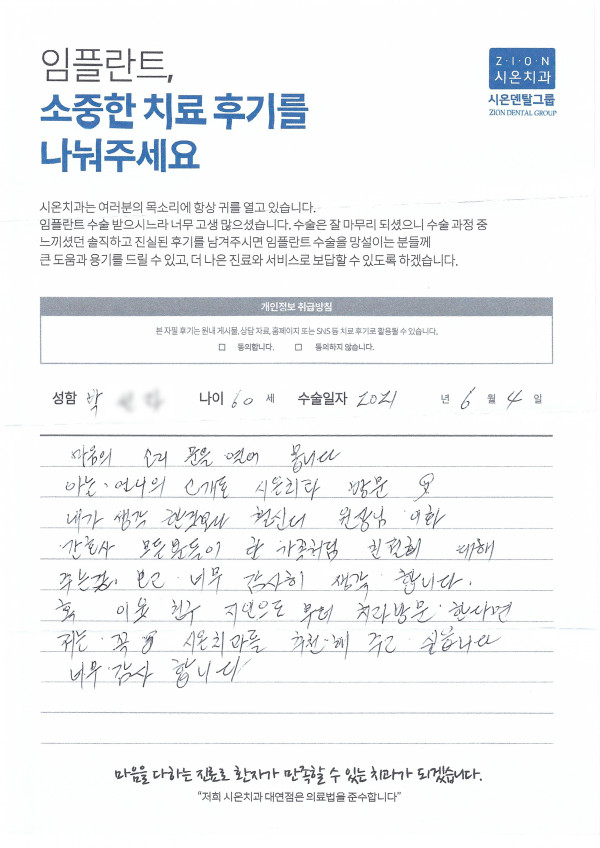 임플란트,
소중한 치료 후기를
나눠주세요
Z·I·O·N
시온치과
시온덴탈그룹
ZION DENTAL GROUP
시온치과는 여러분의 목소리에 항상 귀를 열고 있습니다.
임플란트 수술 받으시느라 너무 고생 많으셨습니다. 수술은 잘 마무리 되셨으니 수술 과정 중
느끼셨던 솔직하고 진실된 후기를 남겨주시면 임플란트 수술을 망설이는 분들께
큰 도움과 용기를 드릴 수 있고, 더 나은 진료와 서비스로 보답할 수 있도록 하겠습니다.
개인정보 취급방침
본 자필 후기는 원내 게시물, 상담 자료, 홈페이지 또는 SNS 등 치료 후기로 활용될 수 있습니다.
☐ 동의합니다. ☐ 동의하지 않습니다.
성함 박 나이 60 세 수술일자 2021 년 6 월 4 일
마음의 소리 문을 열어 봅니다
아는·언니의 소개로 시온치과 방문
내가 생각 훨신더 원장님 이하
간호사 모든분들이 한 가족처럼 친절히 대해
주는걸. 보고·너무 감사히 생각·합니다.
혹 이웃 친구 지인으로 부터 치과방문·한다면
저는·꼭 시온치과를 추천·해 주고 싶습니다
너무·감사 합니다
마음을 다하는 진료로 환자가 만족할 수 있는 치과가 되겠습니다.
“저희 시온치과 대연점은 의료법을 준수합니다”